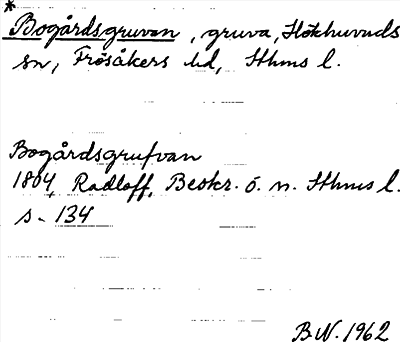 *
Bogårdsgruvan, gruva, Hökhuvuds
sn, Frösåkers hd, Sthms l.
Bogårdsgrufvan
1804, Radloff, Beskr. ö. n. Sthms l.
s. 134
B.N. 1962